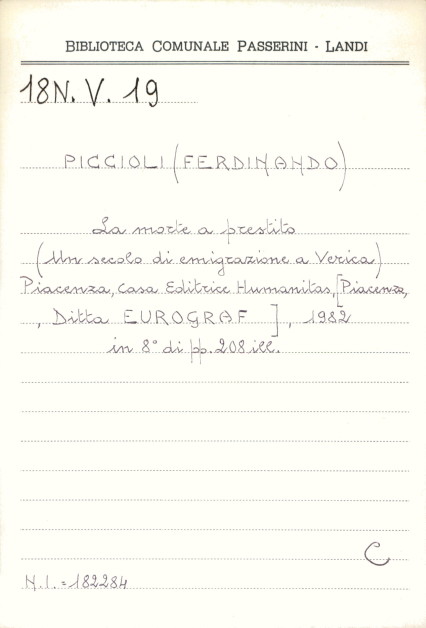 BIBLIOTECA COMUNALE PASSERINI - LANDI
18N. V. 19
PICCIOLI (FERDINANDO)
La morte a prestito
(Un secolo di emigrazione a Verica)
Piacenza, Casa Editrice Humanitas, [Piacenza,
, Ditta EUROGRAF ], 1982
in 8° di pp. 208 ill.
C
N.I. = 182284